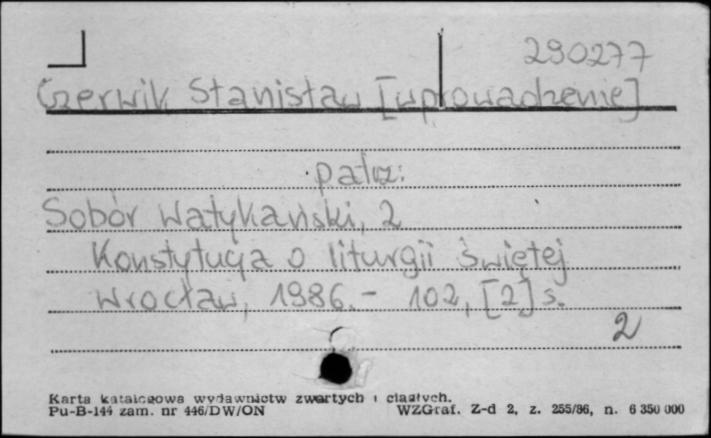 290277
Czerwik Stanisław [wprowadzenie]
patrz:
Sobór Watykański, 2
Konstytucja o liturgii świętej
Wrocław, 1986. - 102, [2] s.
2
Karta katalogowa wydawnictw zwartych i ciągłych.
Pu-B-144 zam. nr 446/DW/ON WZGraf. Z-d 2, z. 255/86, n. 6 350 000